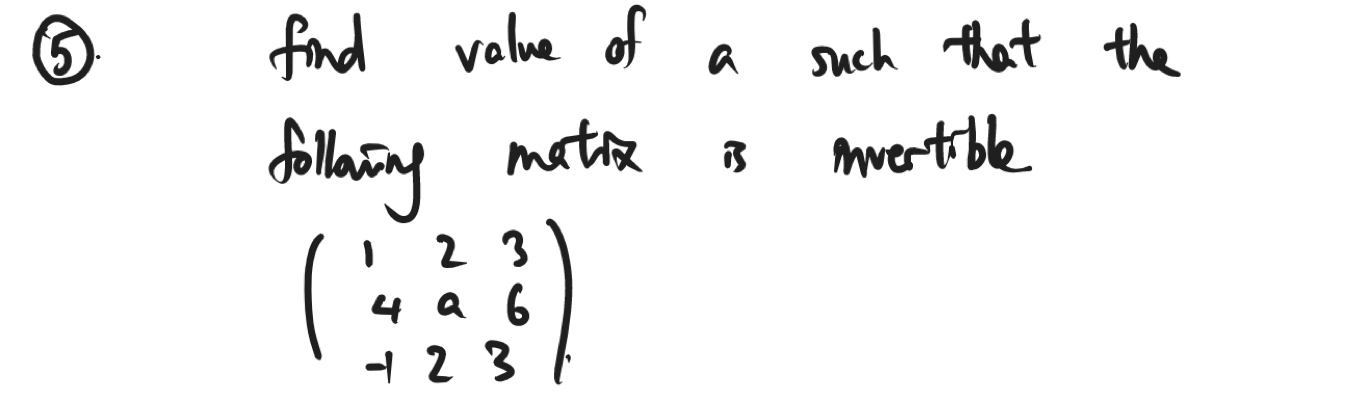 ⑤. find value of a such that the
following matrix is invertible
( 1 2 3
4 a 6
-1 2 3 ).